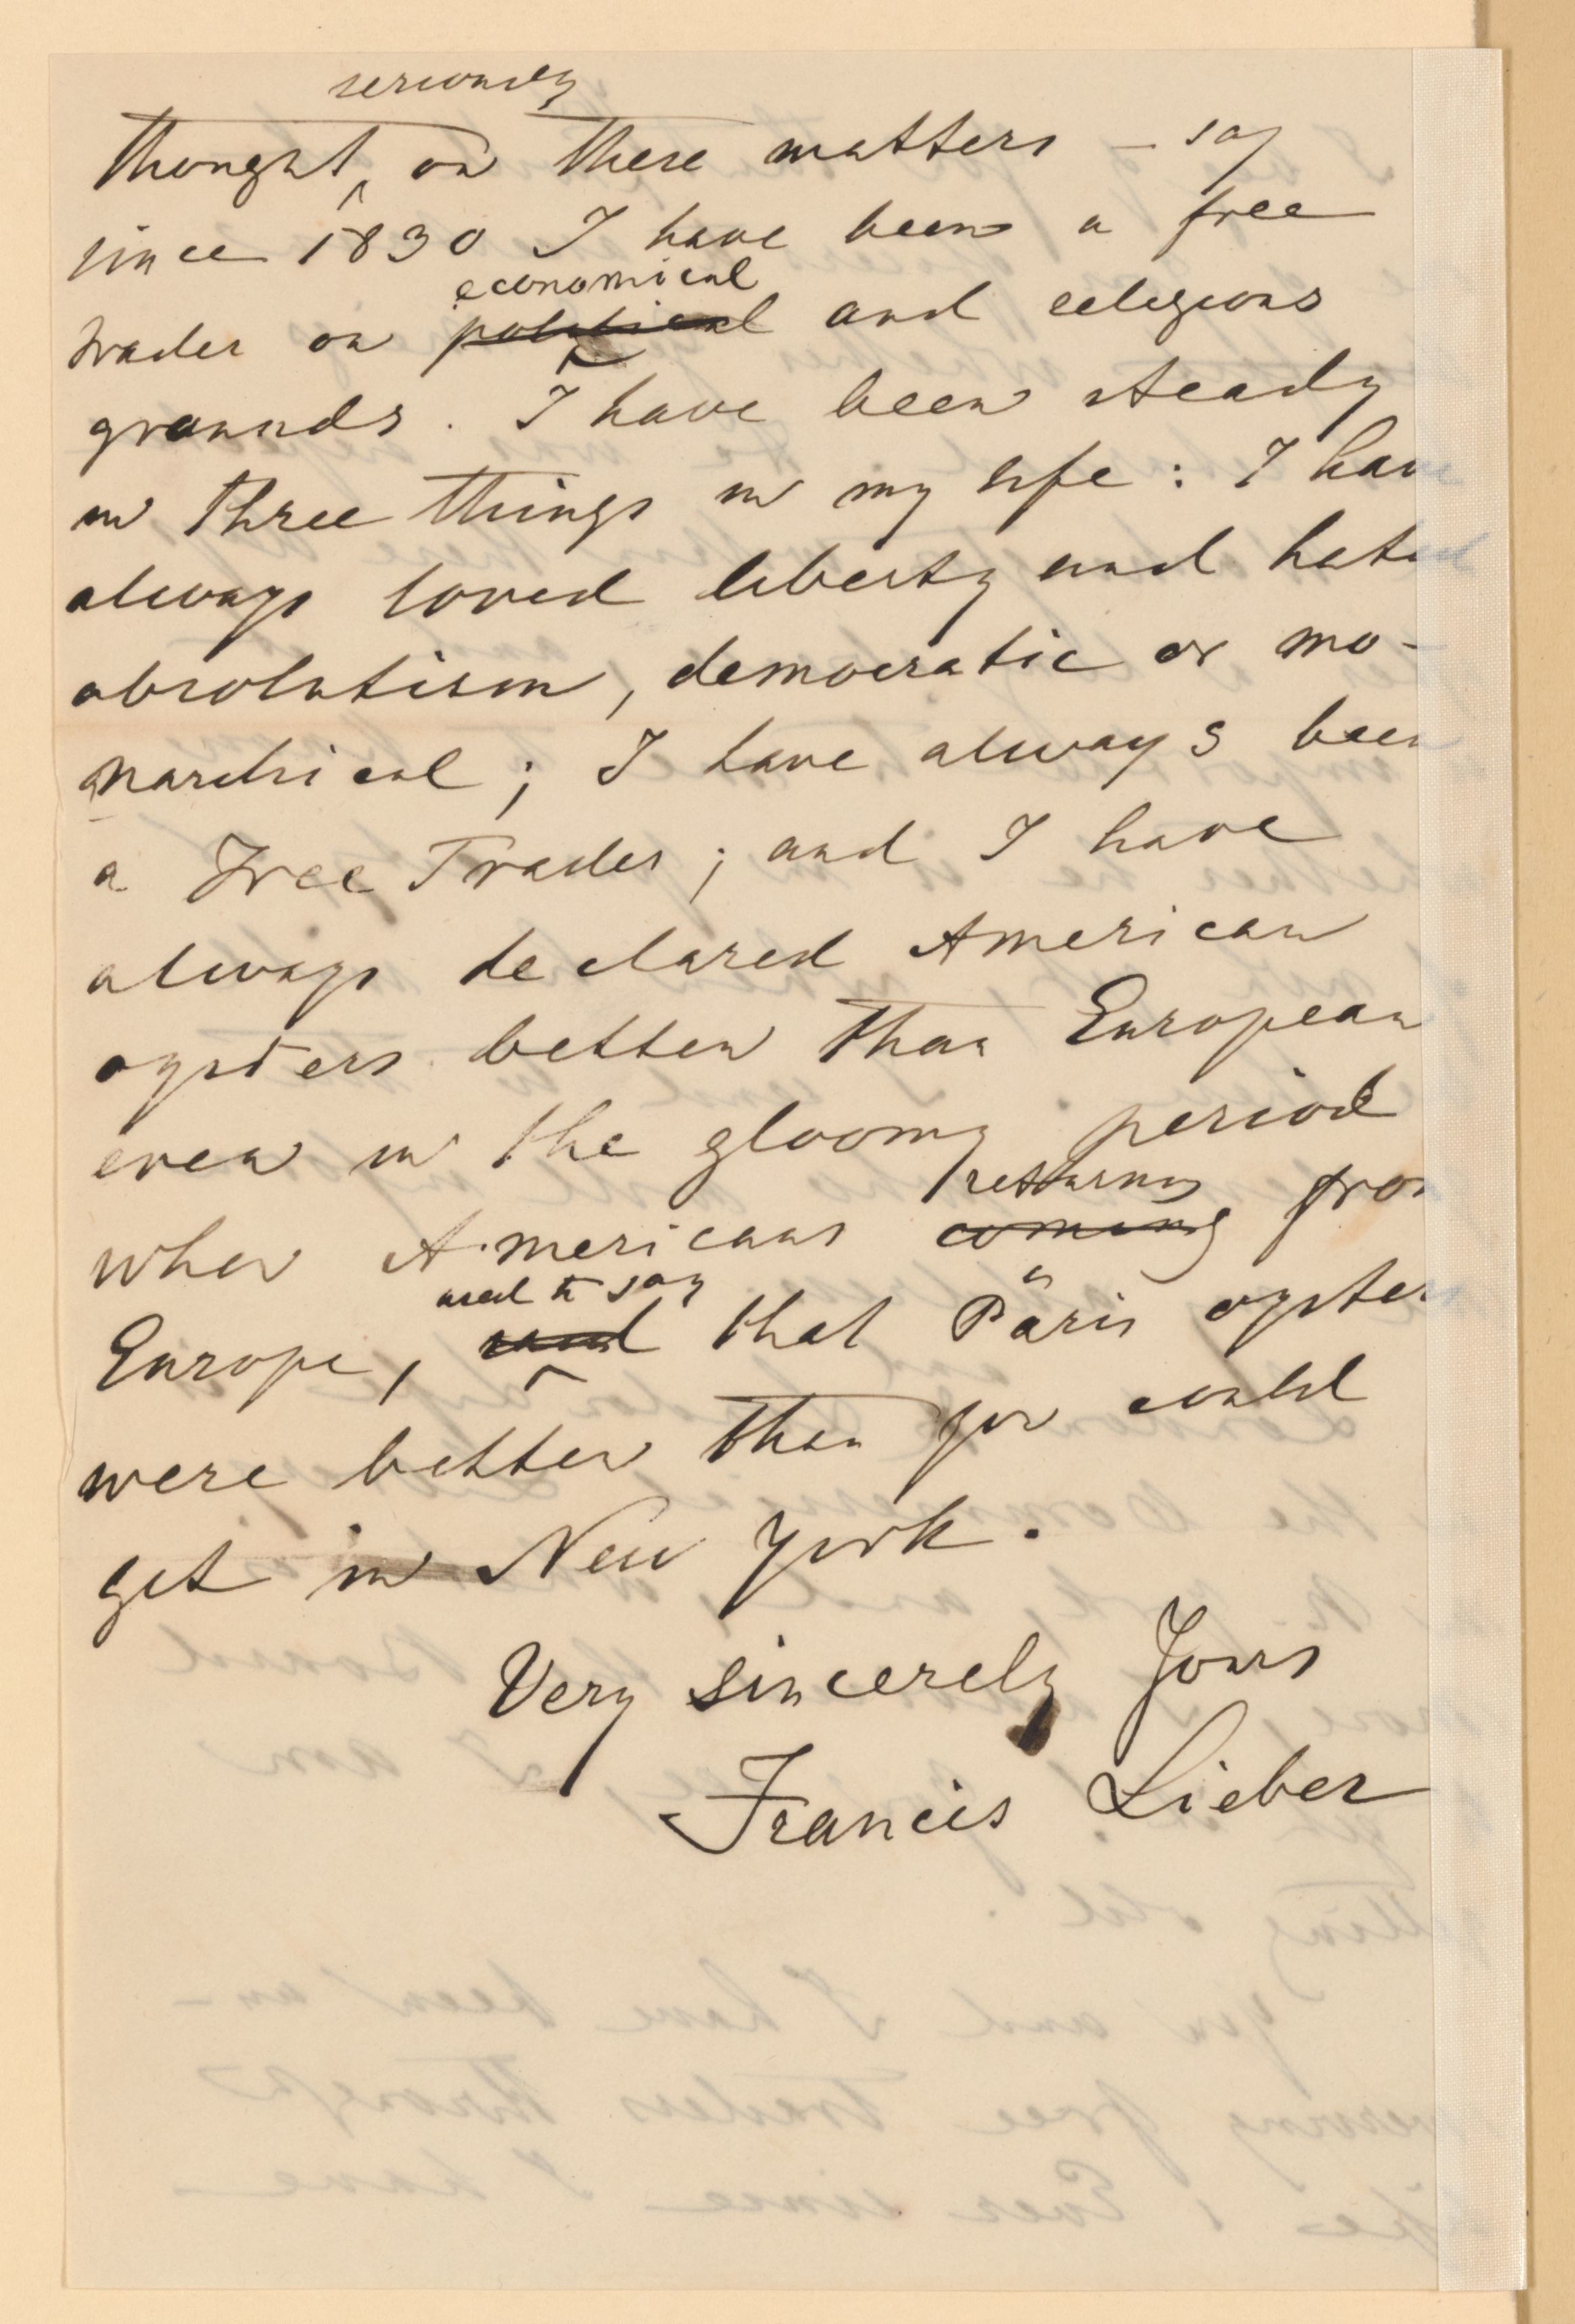 seriously
thought on these matters – say
since 1830 I have been a free
economical
trader on political and religious
grounds. I have been steady
in three things in my life: I have
always loved liberty and hated
absolutism, democratic or mo-
narchical; I have always been
a Free Trader; and I have
always declared American
oysters better than European
even in the gloomy period
returning
when Americans coming from
used to say
Europe, said that Paris oysters
were better than you could
get in New York.
Very sincerely Yours
Francis Lieber